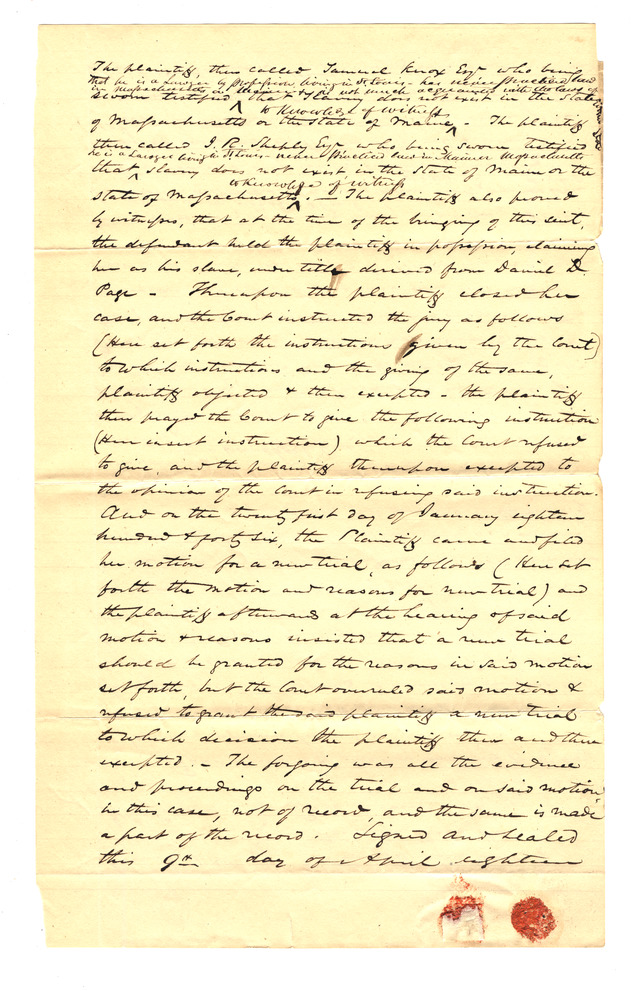 The plaintiff, then called Samuel Knox Esqr who being
that he is a Lawyer by profession, living in St Louis - has never practiced law
in Massachusetts or Maine & is not much acquainted with the laws of
sworn testified ^ that Slavery does not exist in the State
to knowledge of witness
of Massachusetts or the State of Maine ^. - The plaintiff
then called J. R. Shepley Esqr who being sworn testified
he is a Lawyer living in St Louis - never practiced law in Maine or Massachusetts
that ^ slavery does not exist in the State of Maine or the
to knowledge of witness
state of Massachusetts ^. - The plaintiff also proved
by witnesses, that at the time of the bringing of this suit,
the defendant held the plaintiff in possession, claiming
her as his slave, under title derived from Daniel D.
Page - Thereupon the plaintiff closed her
case, and the Court instructed the jury as follows
(Here set forth the instructions given by the Court)
to which instructions and the giving of the same,
plaintiff objected & then excepted - the plaintiff
then prayed the Court to give the following instruction
(Here insert instruction) which the Court refused
to give, and the plaintiff thereupon excepted to
the opinion of the Court in refusing said instruction.
And on the twenty first day of January eighteen
hundred & forty six, the Plaintiff came and filed
her motion for a new trial, as follows (Here set
forth the motion and reasons for new trial) and
the plaintiff afterwards at the hearing of said
motion & reasons insisted that a new trial
should be granted for the reasons in said motion
set forth, but the Court overruled said motion &
refused to grant the said plaintiff a new trial
to which decision the plaintiff then and there
excepted. - The forgoing was all the evidence
and proceedings on the trial and on said motion
in this case, not of record, and the same is made
a part of the record. Signed and sealed
this 9th day of April eighteen